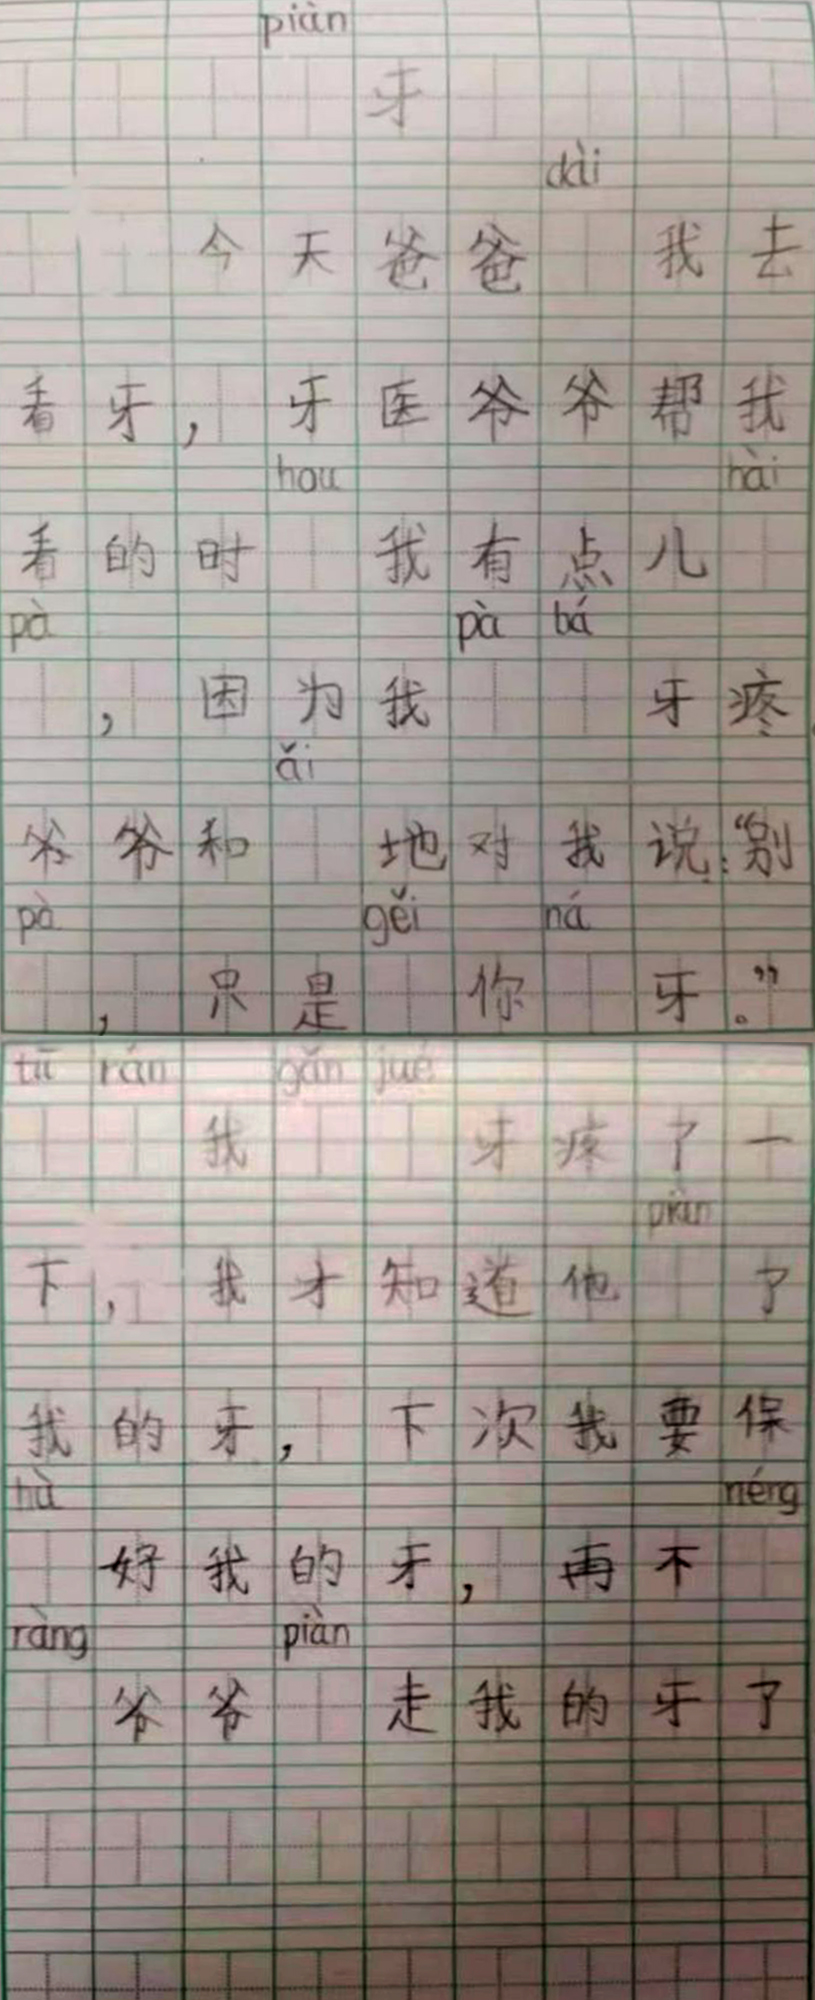 piàn
牙
dài
今天爸爸 我去
看牙，牙医爷爷帮我
hou hài
看的时 我有点儿
pà pà bá
，因为我 牙疼。
ǎi
爷爷和 地对我说：“别
pà gěi ná
，只是 你 牙。”
tū rán gǎn jué
我 牙疼了一
piàn
下，我才知道他 了
我的牙，下次我要保
hù néng
好我的牙，再不
ràng piàn
爷爷 走我的牙了